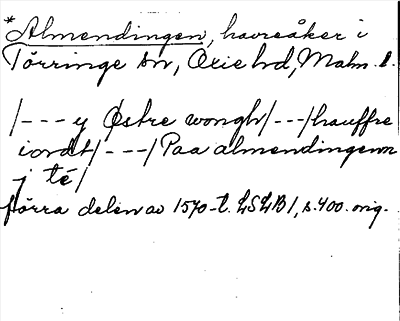 *Almendingen, havreåker i
Törringe sn, Oxie hd, Malm. l.
/--- y Østre wongh/---/hauffre
iordt/---/Paa almendingenn
j té/
förra delen av 1570-t. LSLB1, s. 400. orig.